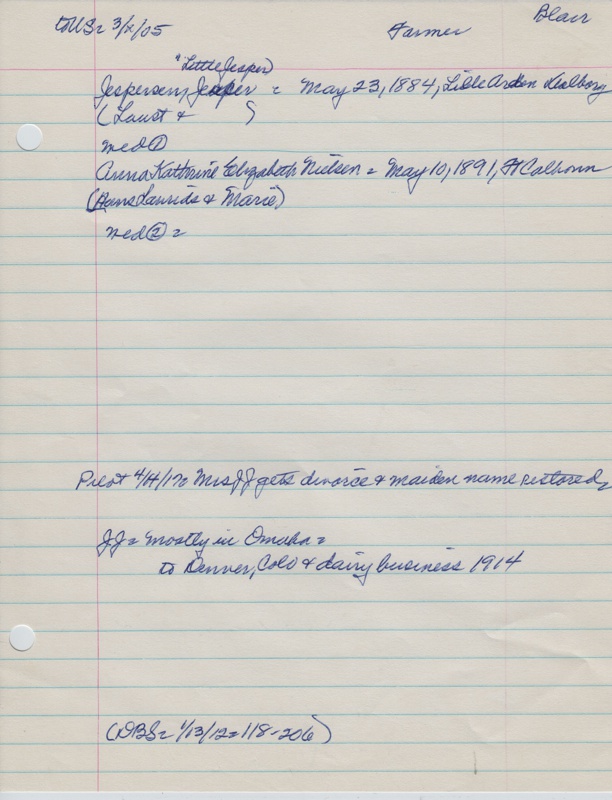 Blair
to US= 3/x/05 Farmer
"Little Jesper"
Jespersen, Jesper = May 23, 1884, Lille Arden Aalborg
(Laust & )
med①
Anna Kathrine Elizabeth Nielsen = May 10, 1891, Ft Calhoun
(Hans Laurids & Marie)
med② =
Pilot 4/4/17= Mrs JJ gets divorce & maiden name restored
JJ= mostly in Omaha=
to Denver, Colo & dairy business 1914
(DBS= 1/13/12=118-206)